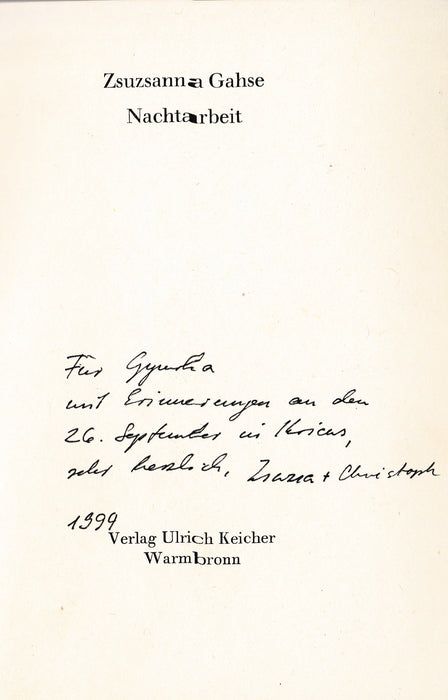 Zsuzsanna Gahse
Nachtarbeit
Für
mit Erinnerungen an den
26. September in
sehr herzlich, Zsuzsa + Christoph
1999
Verlag Ulrich Keicher
Warmbronn